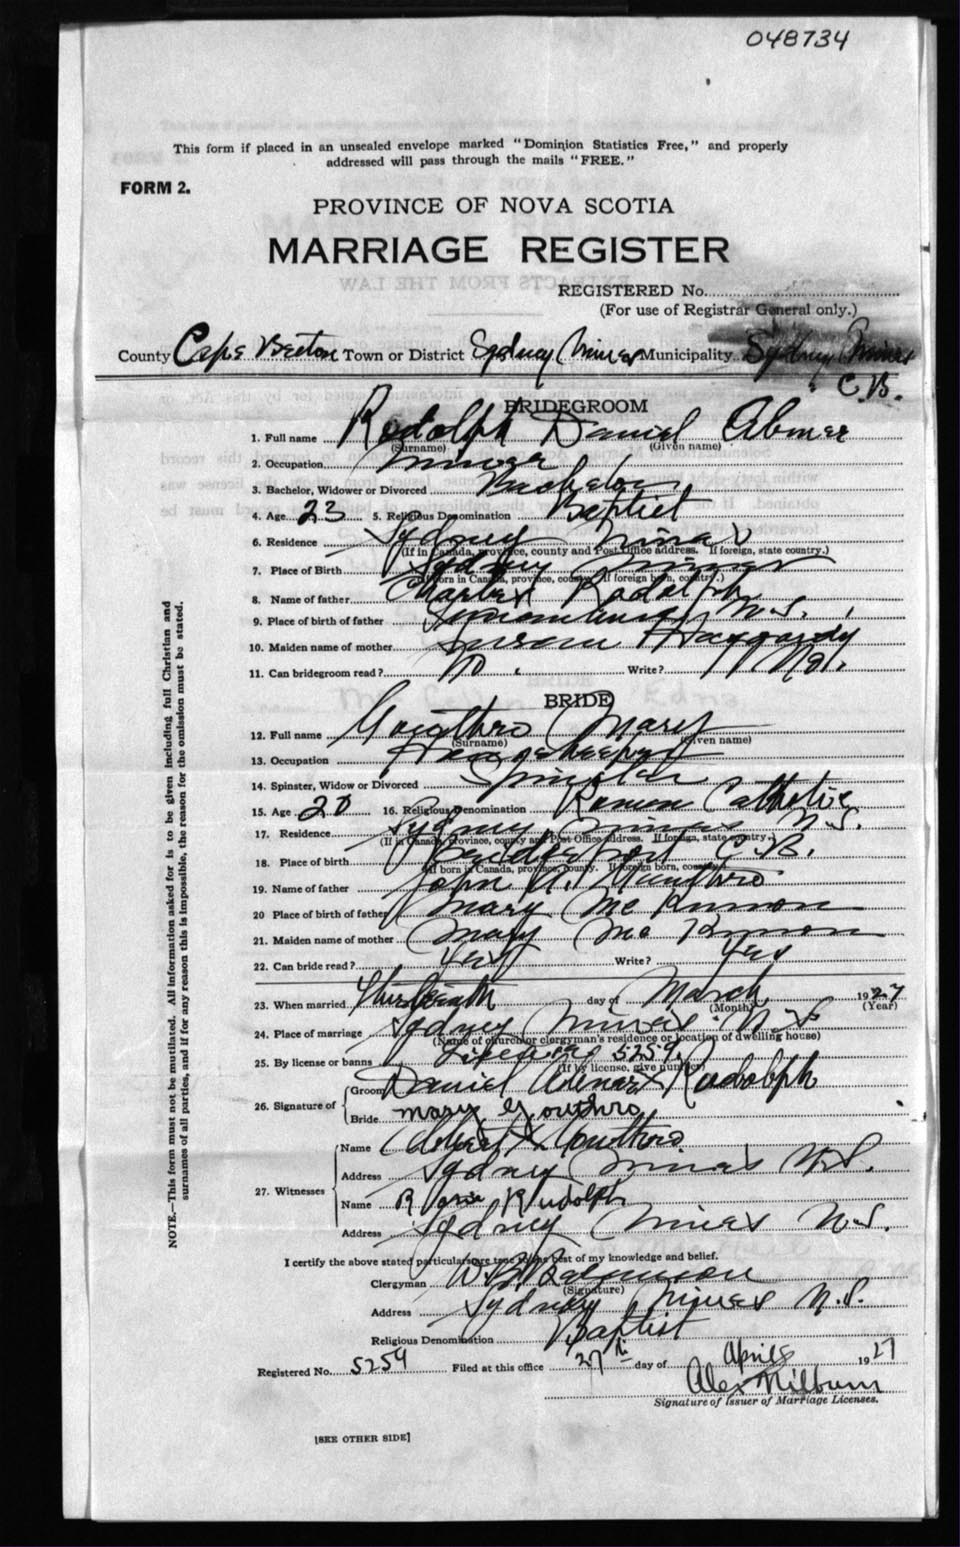 048734
This form if placed in an unsealed envelope marked "Dominion Statistics Free," and properly
addressed will pass through the mails "FREE."
FORM 2.
PROVINCE OF NOVA SCOTIA
MARRIAGE REGISTER
REGISTERED No.
(For use of Registrar General only.)
County Cape Breton Town or District Sydney Mines Municipality Sydney Mines
C.B.
BRIDEGROOM
1. Full name Rodolph Daniel Abner
(Surname) (Given name)
2. Occupation Miner
3. Bachelor, Widower or Divorced Bachelor
4. Age 23 5. Religious Denomination Baptist
6. Residence Sydney Mines
(If in Canada, province, county and Post Office address. If foreign, state country.)
7. Place of Birth Sydney Mines
(If born in Canada, province, county. If foreign born, country.)
8. Name of father Charles Rodolph
9. Place of birth of father N.S.
10. Maiden name of mother Susan
11. Can bridegroom read? No. Write? No.
BRIDE
12. Full name Gouthro Mary
(Surname) (Given name)
13. Occupation Housekeeper
14. Spinster, Widow or Divorced Spinster
15. Age 20 16. Religious Denomination Roman Catholic
17. Residence Sydney Mines N.S.
(If in Canada, province, county and Post Office address. If foreign, state country.)
18. Place of birth C.B.
(If born in Canada, province, county. If foreign born, country.)
19. Name of father John
20 Place of birth of father Mary Mc Kinnon
21. Maiden name of mother Mary Mc Kinnon
22. Can bride read? Yes Write? Yes
23. When married Thirteenth day of March 1927
(Month) (Year)
24. Place of marriage Sydney Mines N.S.
(Name of church or clergyman's residence or location of dwelling house)
25. By license or banns License 5259
(If by license, give number)
26. Signature of
Groom Daniel X Rudolph
Bride mary Gouthro
27. Witnesses
Name X Gouthro
Address Sydney Mines N.S.
Name Rudolph
Address Sydney Mines N.S.
I certify the above stated particulars are true to the best of my knowledge and belief.
Clergyman W.
(Signature)
Address Sydney Mines N.S.
Religious Denomination Baptist
Registered No. 5259 Filed at this office 27th day of April 1927
Alex Milburn
Signature of Issuer of Marriage Licenses.
[SEE OTHER SIDE]
NOTE.—This form must not be mutilated. All information asked for is to be given including full Christian and
surnames of all parties, and if for any reason this is impossible, the reason for the omission must be stated.